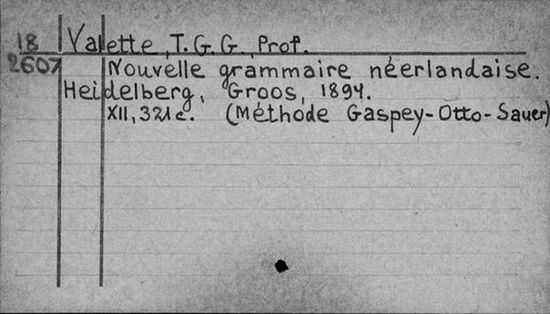 18 Valette, T. G. G., Prof.
2607 Nouvelle grammaire néerlandaise.
Heidelberg, Groos, 1894.
XII, 321 c. (Méthode Gaspey-Otto-Sauer)